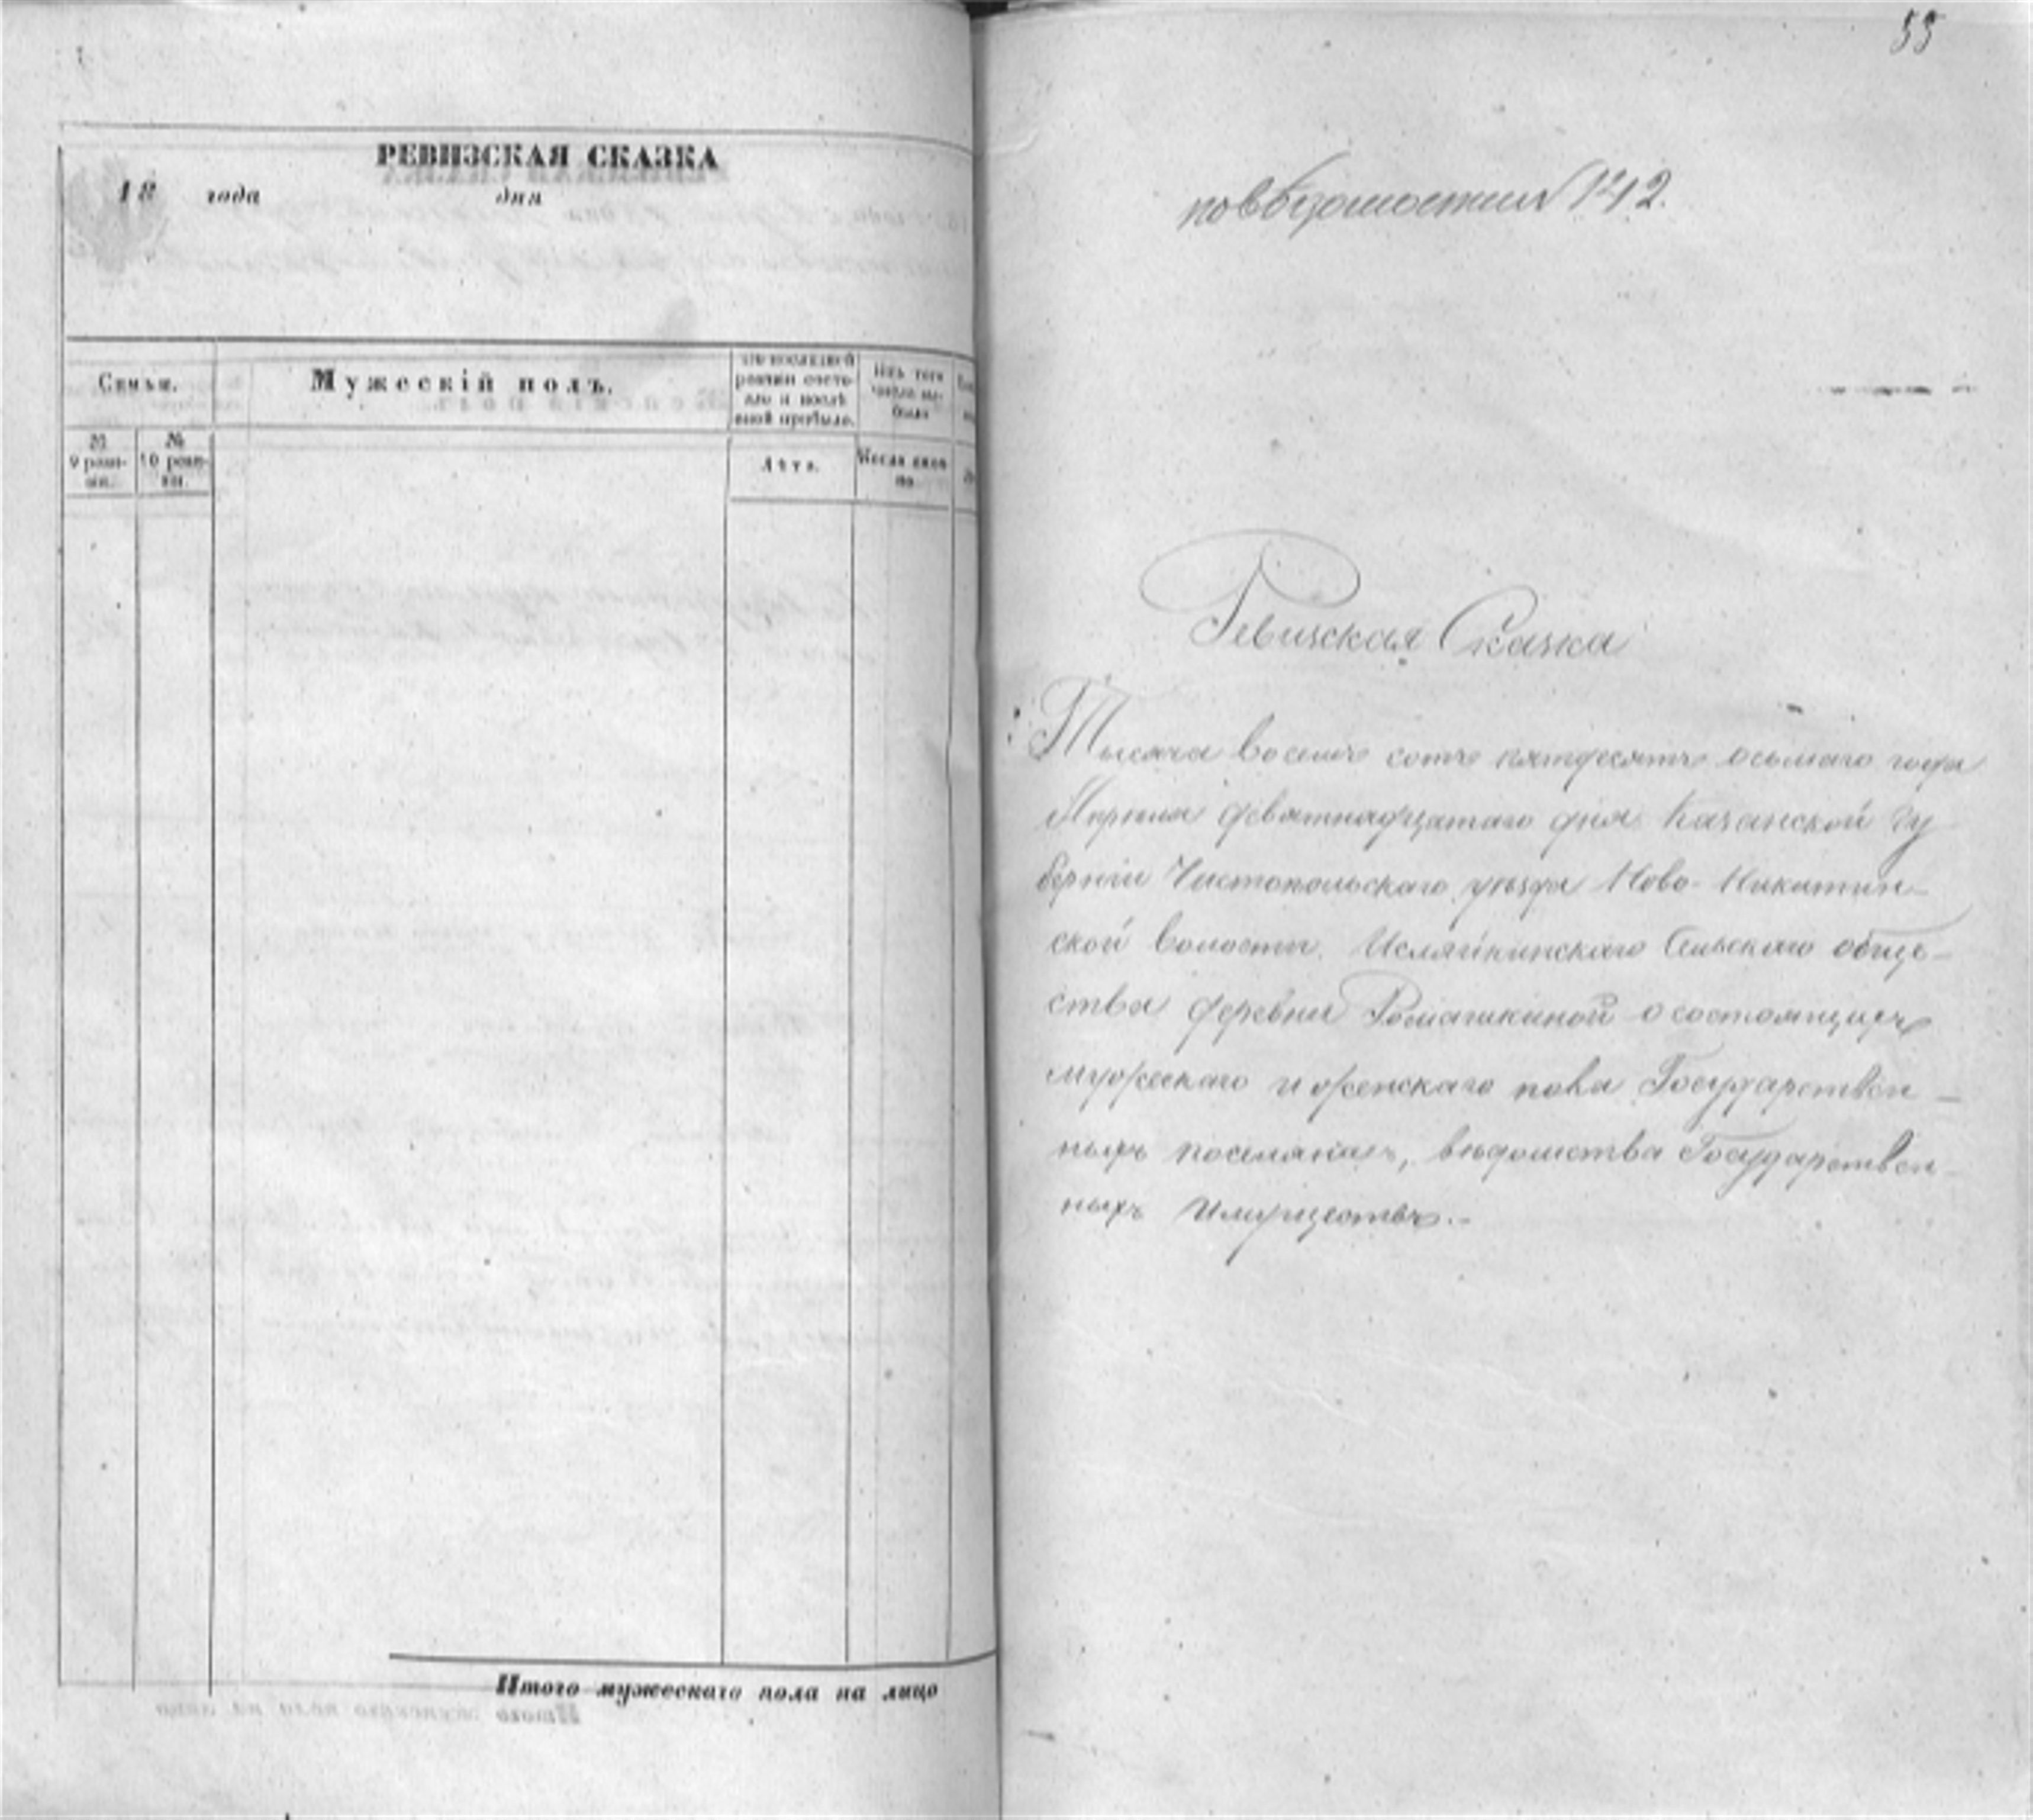 РЕВИЗСКАЯ СКАЗКА
18 года дня
Семьи.
Мужескій полъ.
По послѣдней ревизіи состо-
яло и послѣ
оной прибыло.
Изъ того
числа вы-
было
№ 9 реви-
зіи.
№ 10 реви-
зіи.
Лѣта.
Когда имен-
но
Итого мужескаго пола на лицо
55
по вѣдомости № 142.
Ревизская Сказка
Тысяча восемь сотъ пятдесятъ осьмаго года
Апрѣля девятнадцатаго дня Казанской Гу
берніи Чистопольскаго уѣзда Ново-Никитин-
ской волости. Исляйкинскаго Сельскаго обще-
ства деревни Ромашкиной о состоящихъ
мужескаго и женскаго пола Государствен-
ныхъ поселянахъ, вѣдомства Государствен-
ныхъ Имуществъ.-